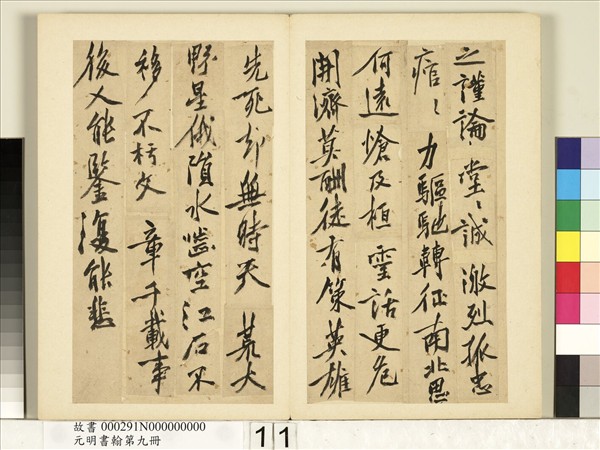 之讜論堂〻誠激烈孤忠
痯〻力驅馳轉征南北思
何遠愴及桓靈話更危
開濟莫酬徒有策英雄
先死却無時天荒大
野星俄隕水嚙空江石不
移不朽文章千載事
後人能鑒復能悲
故書 000291N000000000
元明書翰第九冊
11